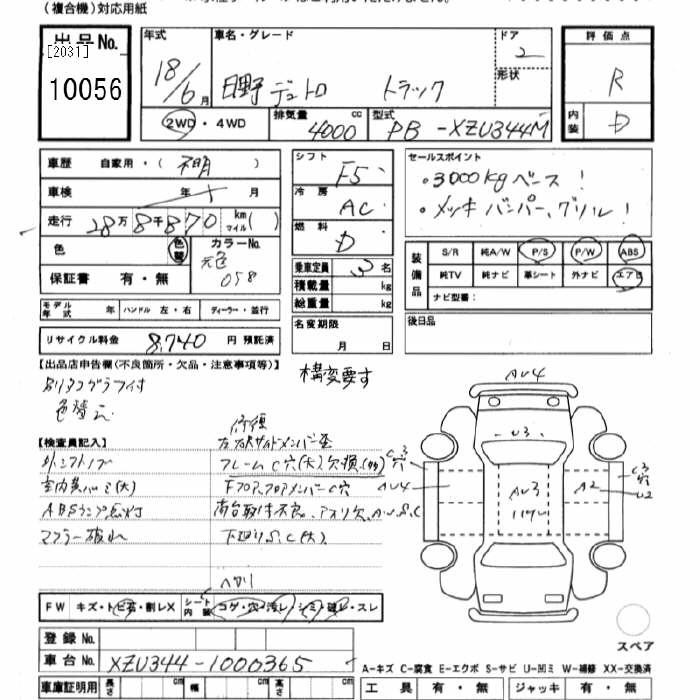 (複合機)対応用紙
出品No.
[2031]
10056
年式
18/6月
車名・グレード
日野 デュトロ トラック
ドア
2
形状
評価点
R
内装
D
2WD・4WD
排気量
4000 cc
型式
PB-XZU344M
車歴 自家用・(不明)
車検 年 月
走行 28万8千870 km マイル( )
色 色替
カラーNo.
元色
058
保証書 有・無
モデル年式 年 ハンドル 左・右 ディーラー・並行
リサイクル料金 8,740 円 預託済
シフト
F5
冷房
AC
燃料
D
乗車定員 3名
積載量 kg
総重量 kg
名変期限
月 日
セールスポイント
・3000kgベース!
・メッキバンパー、グリル!
装備品
S/R 純A/W P/S P/W ABS
純TV 純ナビ 革シート 外ナビ エアB
ナビ型番:
後日品
【出品店申告欄(不良箇所・欠品・注意事項等)】
構変要す
色替え
【検査員記入】
外シフトノブ
ABSランプ点灯
マフラー破れ
修復
左右サイドメンバー歪
フレームC穴(大)欠損(多)
Fフロア、フロアメンバーC穴
荷台取付不良、アオリ欠、A.U.S.C
下廻りS,C(大)
ヘタリ
AU4
U3
C3
穴
AU4
AU3
A2
C3
穴
U2
FW キズ・トビ石・割レX シート内装 コゲ・穴・汚レ シミ・破レ・スレ
スペア
登録No.
車台No. XZU344-1000365
A-キズ C-腐食 E-エクボ S-サビ U-凹ミ W-補修 XX-交換済
車庫証明用 長さ cm 幅 cm 高さ cm
工具 有・無 ジャッキ 有・無